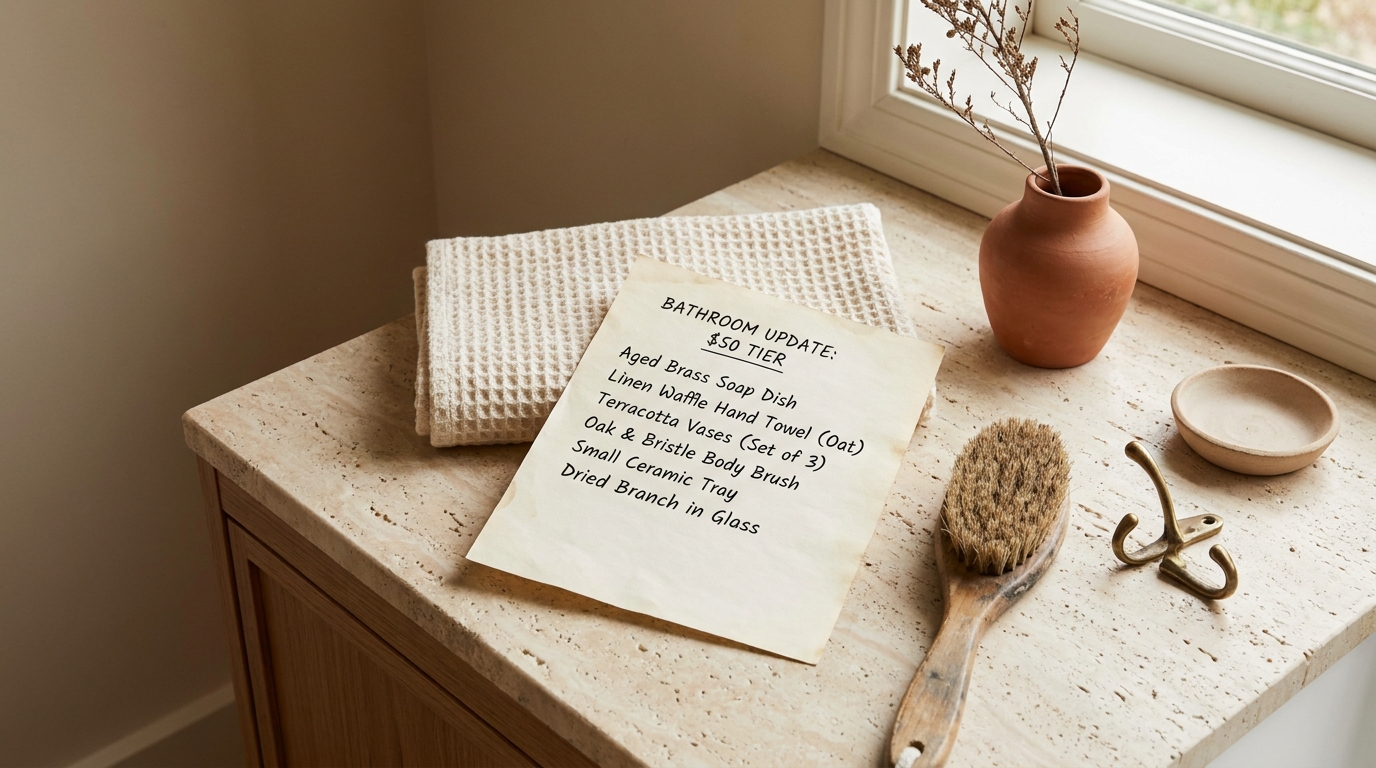 BATHROOM UPDATE:
$50 TIER
Aged Brass Soap Dish
Linen Waffle Hand Towel (Oat)
Terracotta Vases (Set of 3)
Oak & Bristle Body Brush
Small Ceramic Tray
Dried Branch in Glass